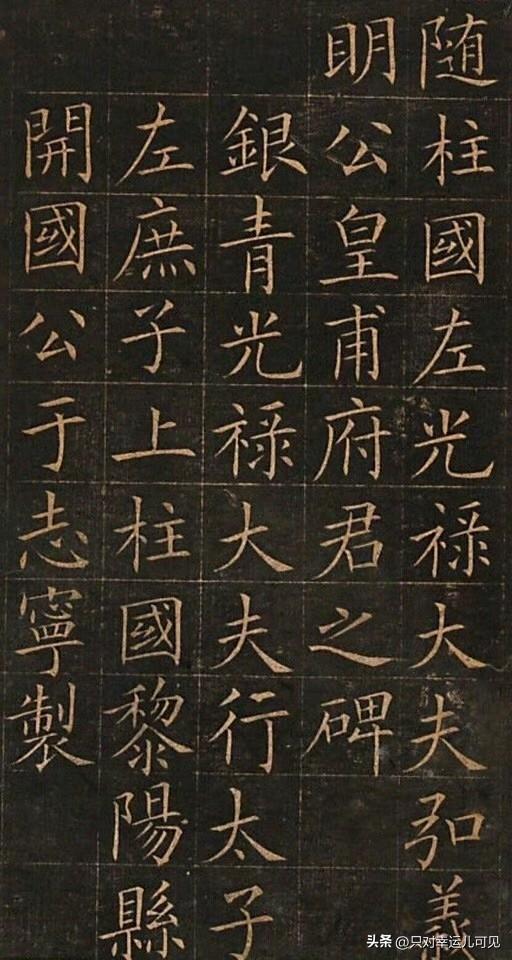 随柱國左光禄大夫弘義
明公皇甫府君之碑
銀青光禄大夫行太子
左庶子上柱國黎陽縣
開國公于志寧製
头条 @只对幸运儿可见